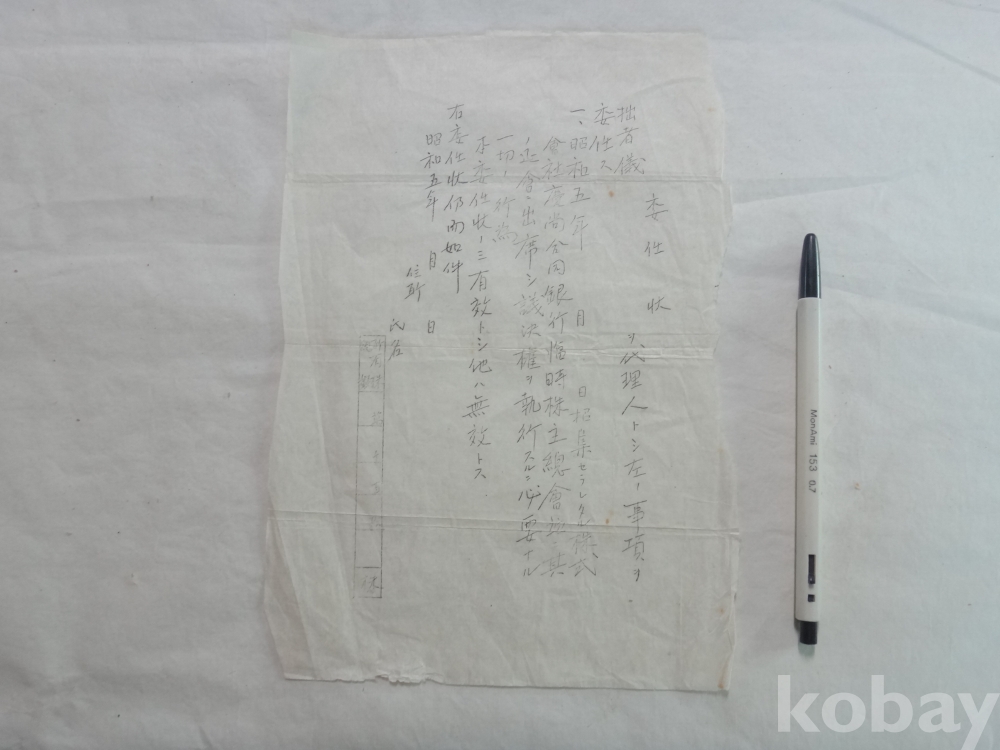 委任状
拙者儀 ヲ代理人トシ左ノ事項ヲ
委任ス
一、昭和五年 月 日招集セラレタル株式
會社慶尚合同銀行臨時株主總會並其
延會ニ出席シ議決權ヲ執行スルニ必要ナル
一切ノ行為
本委任状ノミ有效トシ他ハ無效トス
右委任状仍而如件
昭和五年 月 日
住所
氏名
株
MonAmi 153 0.7
kobay